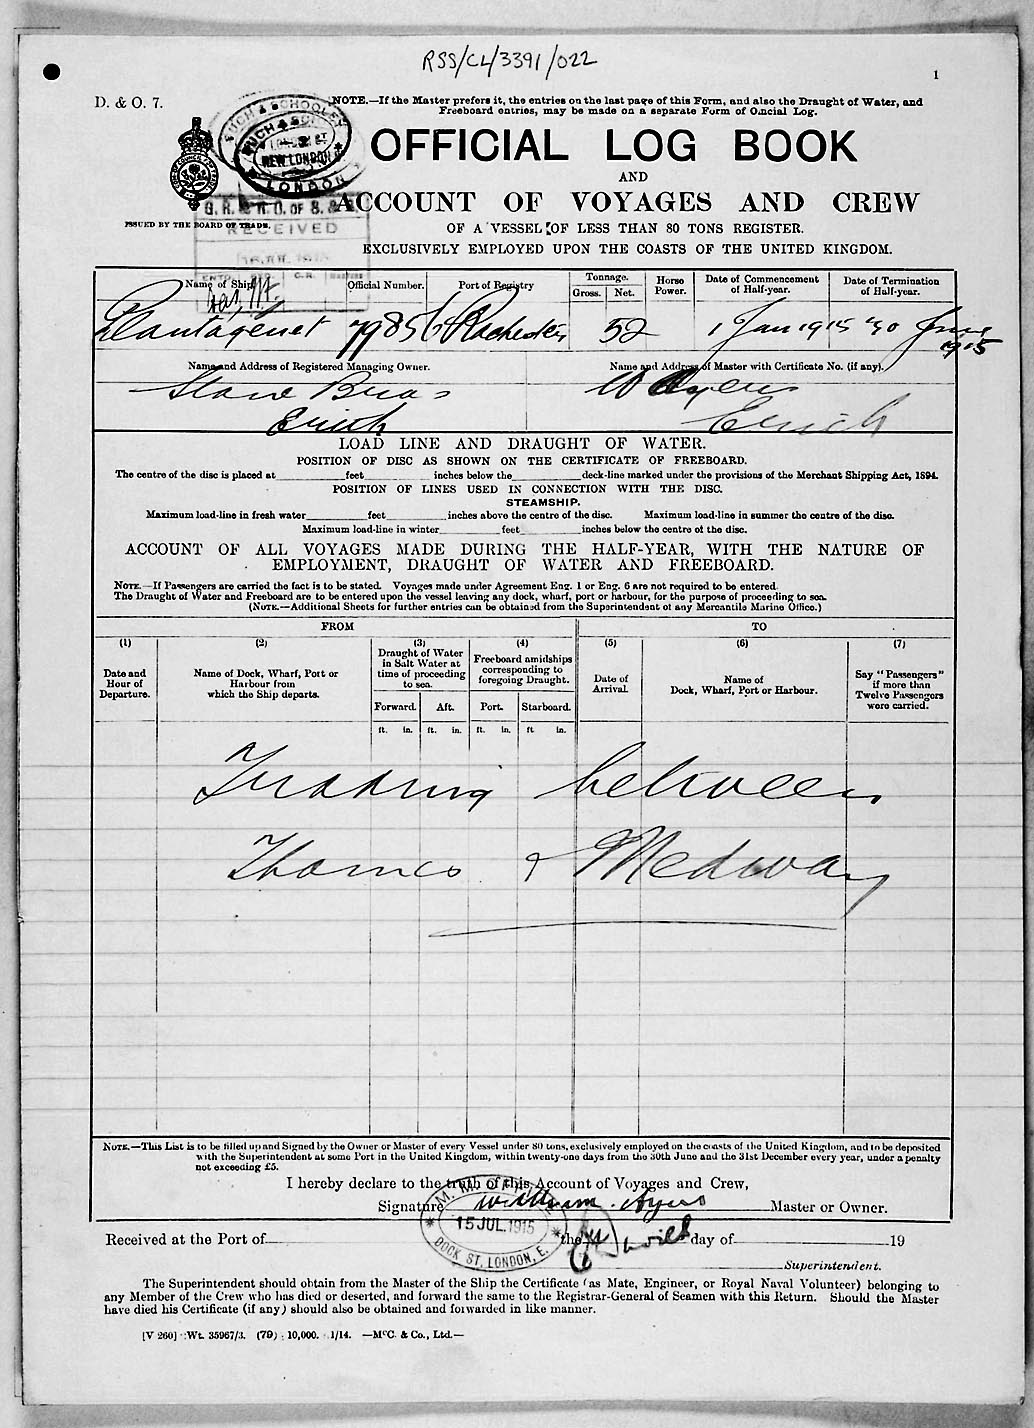 RSS/CL/3391/022
1
D. & O. 7.
NOTE.—If the Master prefers it, the entries on the last page of this Form, and also the Draught of Water, and
Freeboard entries, may be made on a separate Form of Official Log.
OFFICIAL LOG BOOK
AND
ACCOUNT OF VOYAGES AND CREW
OF A VESSEL OF LESS THAN 80 TONS REGISTER.
EXCLUSIVELY EMPLOYED UPON THE COASTS OF THE UNITED KINGDOM.
ISSUED BY THE BOARD OF TRADE.
LONDON
RECEIVED
Name of Ship. Official Number. Port of Registry Tonnage. Gross. Net. Horse Power. Date of Commencement of Half-year. Date of Termination of Half-year.
Plantagenet 79856 Rochester 52 1 Jan 1915 30 June 1915
Name and Address of Registered Managing Owner. Name and Address of Master with Certificate No. (if any).
Stone Bros W Ayers
Erith Erith
LOAD LINE AND DRAUGHT OF WATER.
POSITION OF DISC AS SHOWN ON THE CERTIFICATE OF FREEBOARD.
The centre of the disc is placed at feet inches below the deck-line marked under the provisions of the Merchant Shipping Act, 1894.
POSITION OF LINES USED IN CONNECTION WITH THE DISC.
STEAMSHIP.
Maximum load-line in fresh water feet inches above the centre of the disc. Maximum load-line in summer the centre of the disc.
Maximum load-line in winter feet inches below the centre of the disc.
ACCOUNT OF ALL VOYAGES MADE DURING THE HALF-YEAR, WITH THE NATURE OF
EMPLOYMENT, DRAUGHT OF WATER AND FREEBOARD.
NOTE.—If Passengers are carried the fact is to be stated. Voyages made under Agreement Eng. 1 or Eng. 6 are not required to be entered.
The Draught of Water and Freeboard are to be entered upon the vessel leaving any dock, wharf, port or harbour, for the purpose of proceeding to sea.
(NOTE.—Additional Sheets for further entries can be obtained from the Superintendent of any Mercantile Marine Office.)
FROM TO
(1) (2) (3) (4) (5) (6) (7)
Date and Hour of Departure.
Name of Dock, Wharf, Port or Harbour from which the Ship departs.
Draught of Water in Salt Water at time of proceeding to sea.
Freeboard amidships corresponding to foregoing Draught.
Date of Arrival.
Name of Dock, Wharf, Port or Harbour.
Say "Passengers" if more than Twelve Passengers were carried.
Forward. Aft. Port. Starboard.
ft. in. ft. in. ft. in. ft in.
Trading between
Thames & Medway
NOTE.—This List is to be filled up and Signed by the Owner or Master of every Vessel under 80 tons, exclusively employed on the coasts of the United Kingdom, and to be deposited
with the Superintendent at some Port in the United Kingdom, within twenty-one days from the 30th June and the 31st December every year, under a penalty
not exceeding £5.
I hereby declare to the truth of this Account of Voyages and Crew,
Signature William Ayers Master or Owner.
15 JUL. 1915
DOCK ST. LONDON, E.
Received at the Port of the day of 19
Superintendent.
The Superintendent should obtain from the Master of the Ship the Certificate (as Mate, Engineer, or Royal Naval Volunteer) belonging to
any Member of the Crew who has died or deserted, and forward the same to the Registrar-General of Seamen with this Return. Should the Master
have died his Certificate (if any) should also be obtained and forwarded in like manner.
[V 260] Wt. 35967/3. (79) 10,000. 1/14. —McC. & Co., Ltd.—